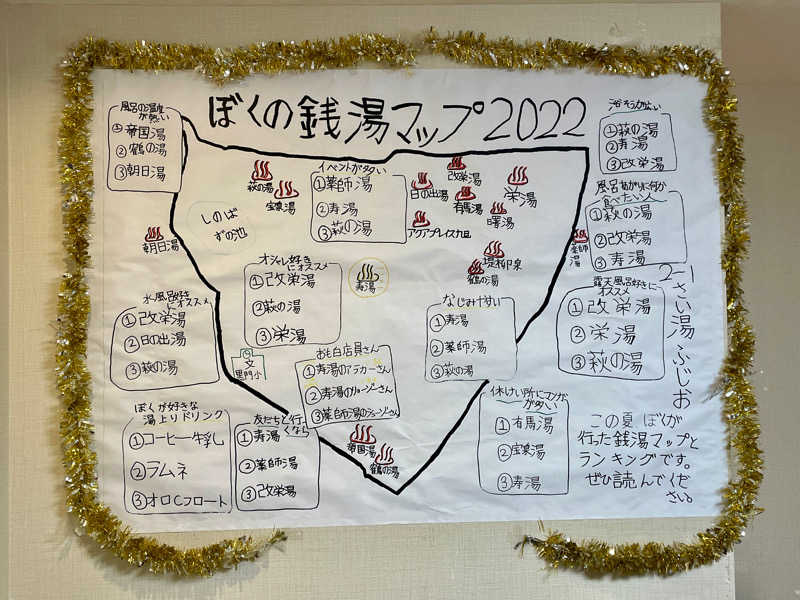 ぼくの銭湯マップ2022
風呂の温度
が熱い
①帝国湯
②鶴の湯
③朝日湯
イベントが多い
①薬師湯
②寿湯
③萩の湯
浴そうが広い
①萩の湯
②寿湯
③改栄湯
風呂あがりに何か
食べたい人
①萩の湯
②改栄湯
③寿湯
萩の湯
宝泉湯
しのば
ずの池
日の出湯
改栄湯
有馬湯
栄湯
曙湯
アクアプレイス旭
堤柳泉
鶴の湯
薬師
湯
朝日湯
寿湯
オシャレ好き
にオススメ
①改栄湯
②萩の湯
③栄湯
なじみやすい
①寿湯
②薬師湯
③萩の湯
露天風呂好きに
オススメ
①改栄湯
②栄湯
③萩の湯
2-1
さい湯ふじお
水風呂好き
にオススメ
①改栄湯
②日の出湯
③萩の湯
文
黒門小
おも白店員さん
①寿湯のアラカーさん
②寿湯のリョージーさん
③薬師湯のチョージューさん
ぼくが好きな
湯上りドリンク
①コーヒー牛乳
②ラムネ
③オロCフロート
友だちと行
くなら
①寿湯
②薬師湯
③改栄湯
帝国湯
鶴の湯
休けい所にマンガ
が多い
①有馬湯
②宝泉湯
③寿湯
この夏ぼくが
行った銭湯マップと
ランキングです。
ぜひ読んでくだ
さい。